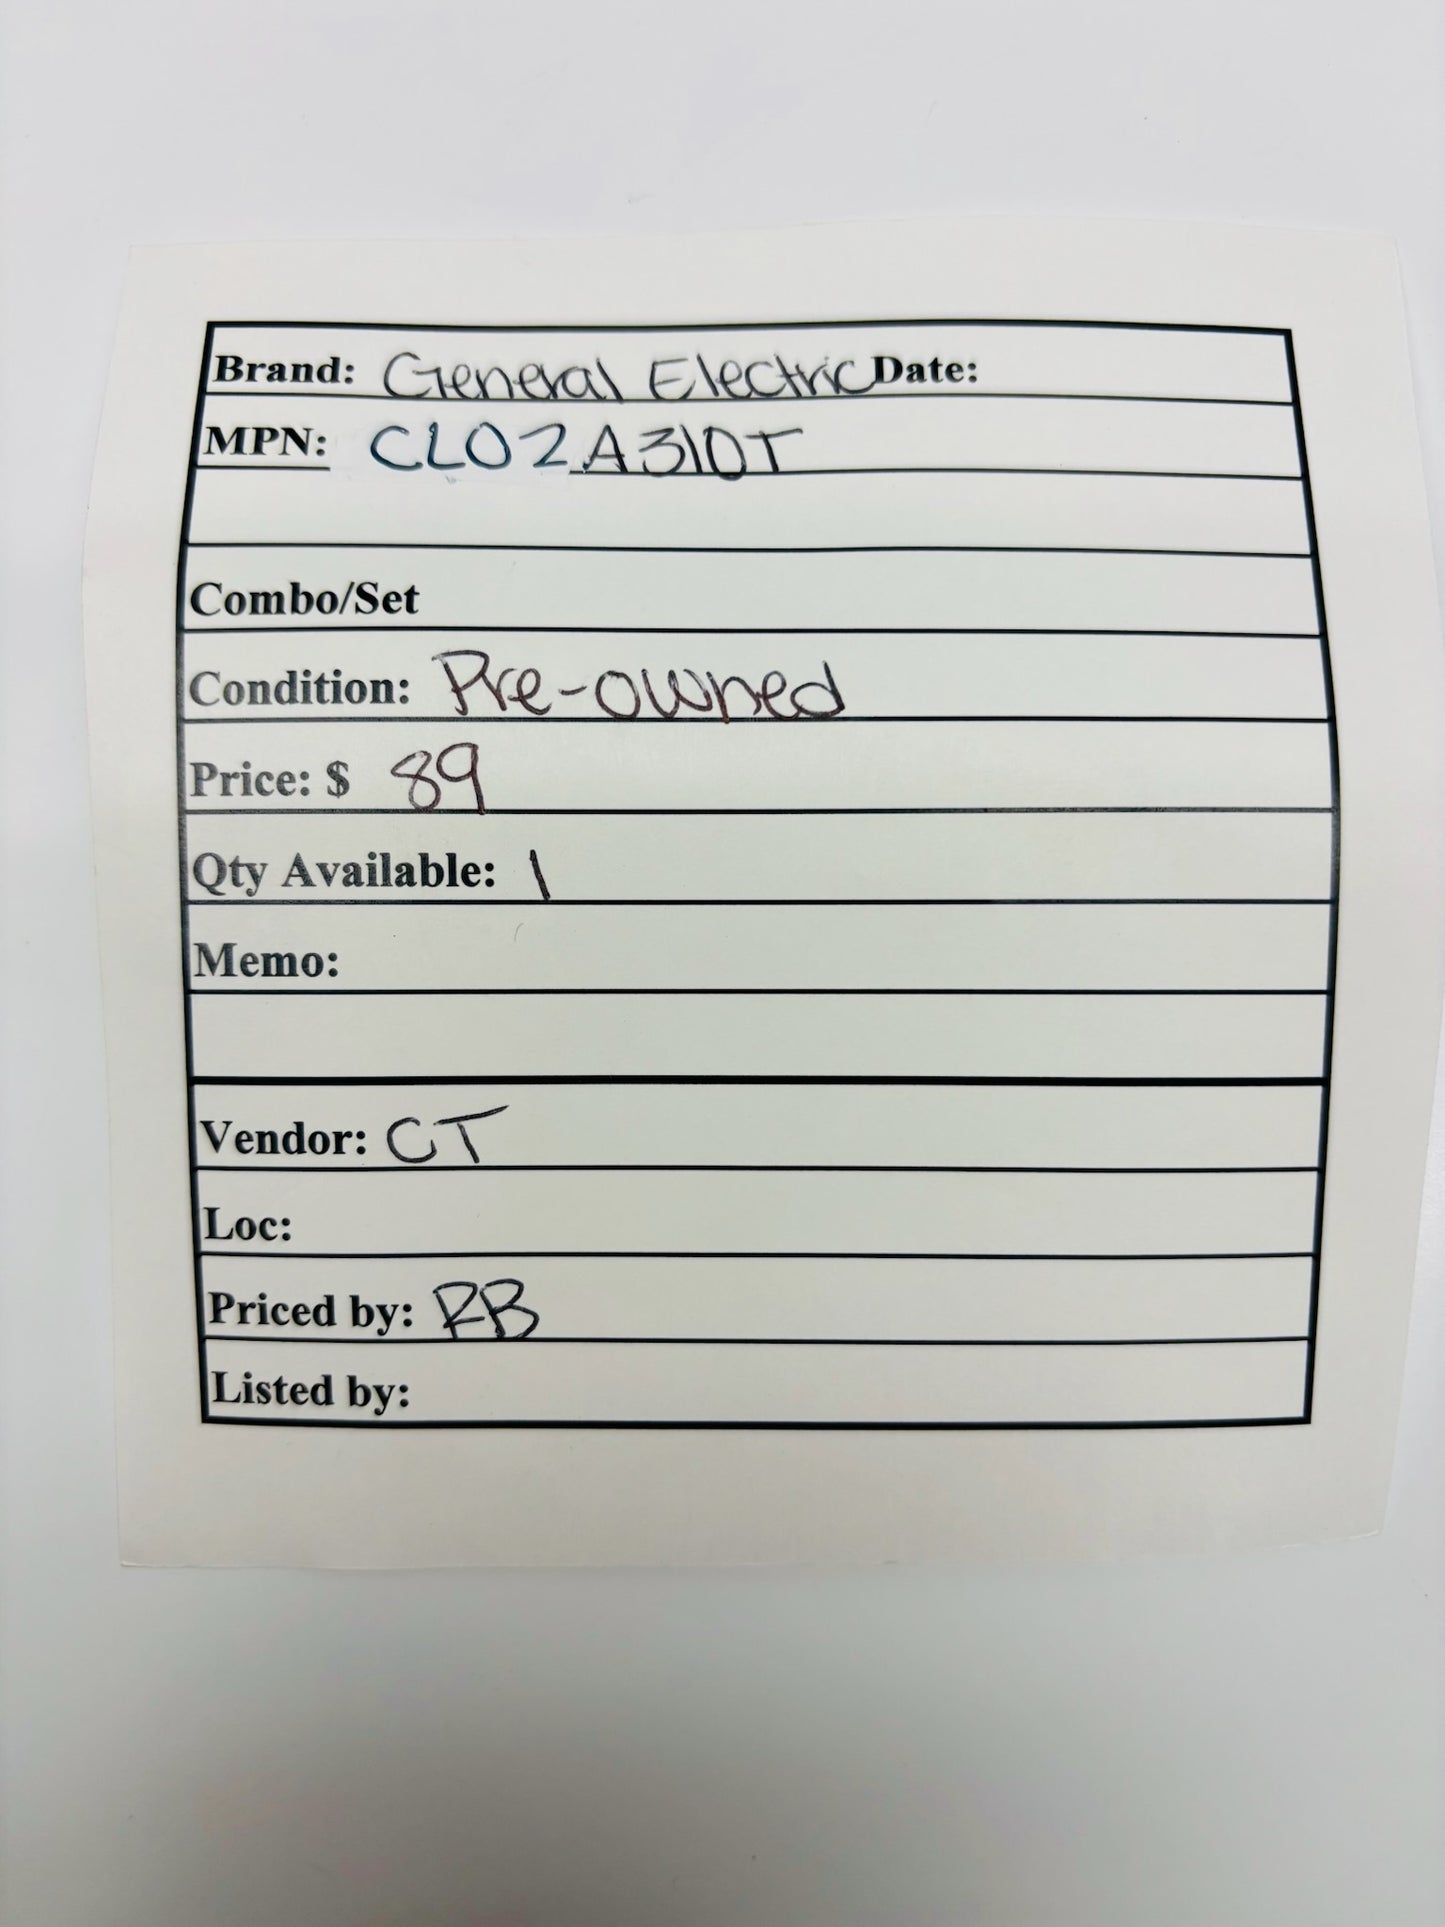 Brand: General Electric Date:
MPN: CL02A310T
Combo/Set
Condition: Pre-owned
Price: $ 89
Qty Available: 1
Memo:
Vendor: CT
Loc:
Priced by: RB
Listed by: